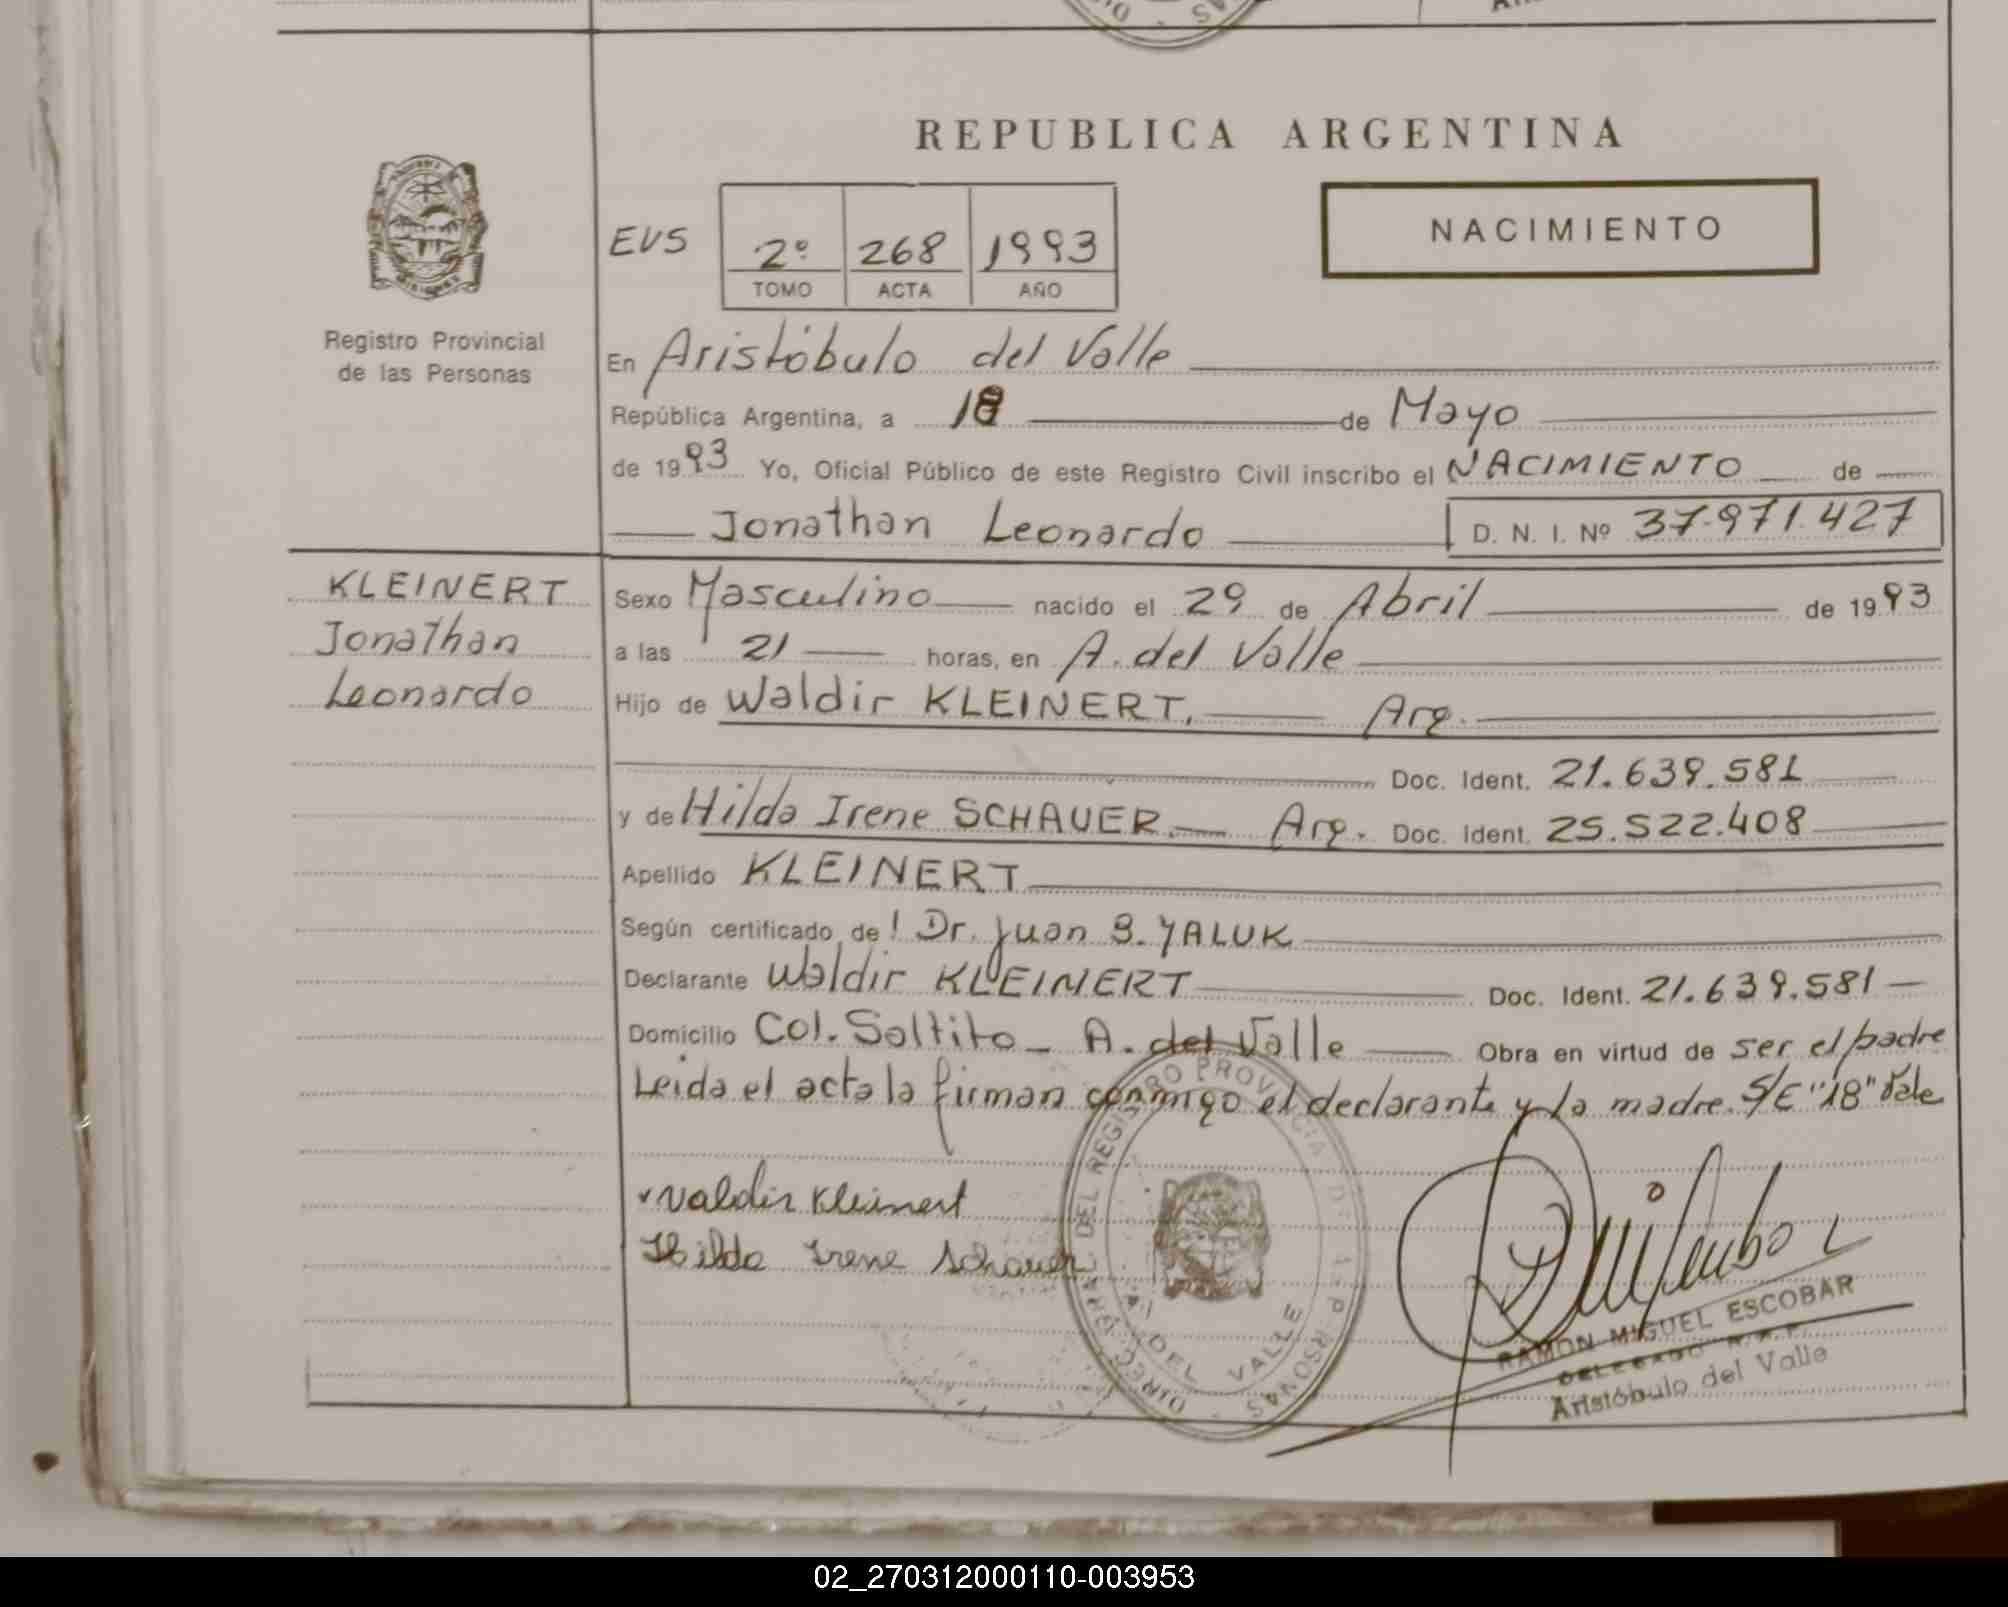 REPUBLICA ARGENTINA
NACIMIENTO
EVS 2º 268 1993
TOMO ACTA AÑO
Registro Provincial
de las Personas
En Aristóbulo del Valle
República Argentina, a 18 de Mayo
de 1993 Yo, Oficial Público de este Registro Civil inscribo el NACIMIENTO de
Jonathan Leonardo D. N. I. Nº 37.971.427
KLEINERT
Jonathan
Leonardo
Sexo Masculino nacido el 29 de Abril de 1993
a las 21 horas, en A. del Valle
Hijo de Waldir KLEINERT. Arg.
Doc. Ident. 21.639.581
y de Hilda Irene SCHAUER. Arg. Doc. Ident. 25.522.408
Apellido KLEINERT
Según certificado de! Dr. Juan B. YALUK
Declarante Waldir KLEINERT Doc. Ident. 21.639.581
Domicilio Col. Saltito - A. del Valle Obra en virtud de ser el padre
Leida el acta la firman conmigo el declarante y la madre. S/E "18" Vale
Valdir Kleinert
Hilda Irene Schauer
DIREC. GRAL. DEL REGISTRO PROVINCIAL DE LAS PERSONAS
A. DEL VALLE
RAMON MIGUEL ESCOBAR
DELEGADO R.P.P.
Aristóbulo del Valle
02_270312000110-003953